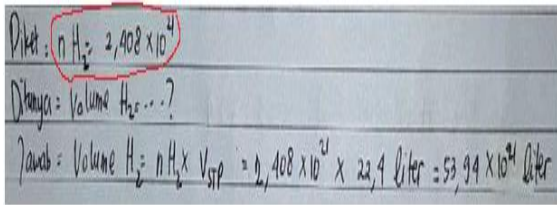 Diket : n H₂ = 2,408 x 10²¹
Ditanya = Volume H₂ = ...?
Jawab = Volume H₂ = n H₂ x V_STP = 2,408 x 10²¹ x 22,4 liter = 53,94 x 10²¹ liter